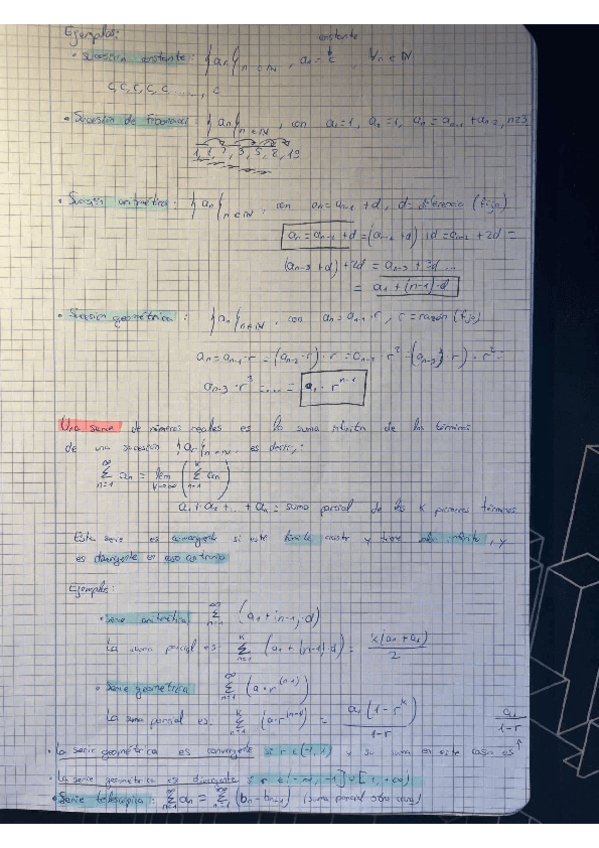 Ejemplos: constante
• Sucesión constante: {an}n∈ℕ, an = c, ∀n∈ℕ
c, c, c, c, c ....., c
• Sucesión de Fibonacci {an}n∈ℕ, con a1=1, a2=1, an = an-1 + an-2, n≥3
1, 1, 2, 3, 5, 8, 13
• Sucesión aritmética: {an}n∈ℕ, con an = an-1 + d, d = diferencia (fijo)
an = an-1 + d = (an-2 + d) + d = an-2 + 2d =
(an-3 + d) + 2d = an-3 + 3d ...
= a1 + (n-1)·d
• Sucesión geométrica: {an}n∈ℕ, con an = an-1 · r, r = razón (fijo)
an = an-1 · r = (an-2 · r) · r = an-2 · r² = (an-3 · r) · r² =
an-3 · r³ = .... = a1 · r^(n-1)
Una serie de números reales es la suma infinita de los términos
de una sucesión {an}n∈ℕ. es decir,:
∞Σn=1 an = lím k→∞ (kΣn=1 an)
a1 + a2 + ... + an = suma parcial de los k primeros términos
Esta serie es convergente si este límite existe y , y
es divergente en caso contrario
Ejemplos:
• Serie aritmética ∞Σn=1 (a1 + (n-1)·d)
La suma parcial es: kΣn=1 (a1 + (n-1)·d) = k(a1 + ak)/2
• Serie geométrica ∞Σn=1 (a·r^(n-1))
La suma parcial es: kΣn=1 (a·r^(n-1)) = a(1-r^k)/1-r a1/1-r
• La serie geométrica es convergente si r∈(-1, 1) y su suma en este caso es ↑
• La serie geométrica es divergente si r∈(-∞, -1]∪[1, +∞)
• Serie telescópica: ∞Σn=1 an = ∞Σn=1 (bn - bn+1) (suma parcial otra cara)